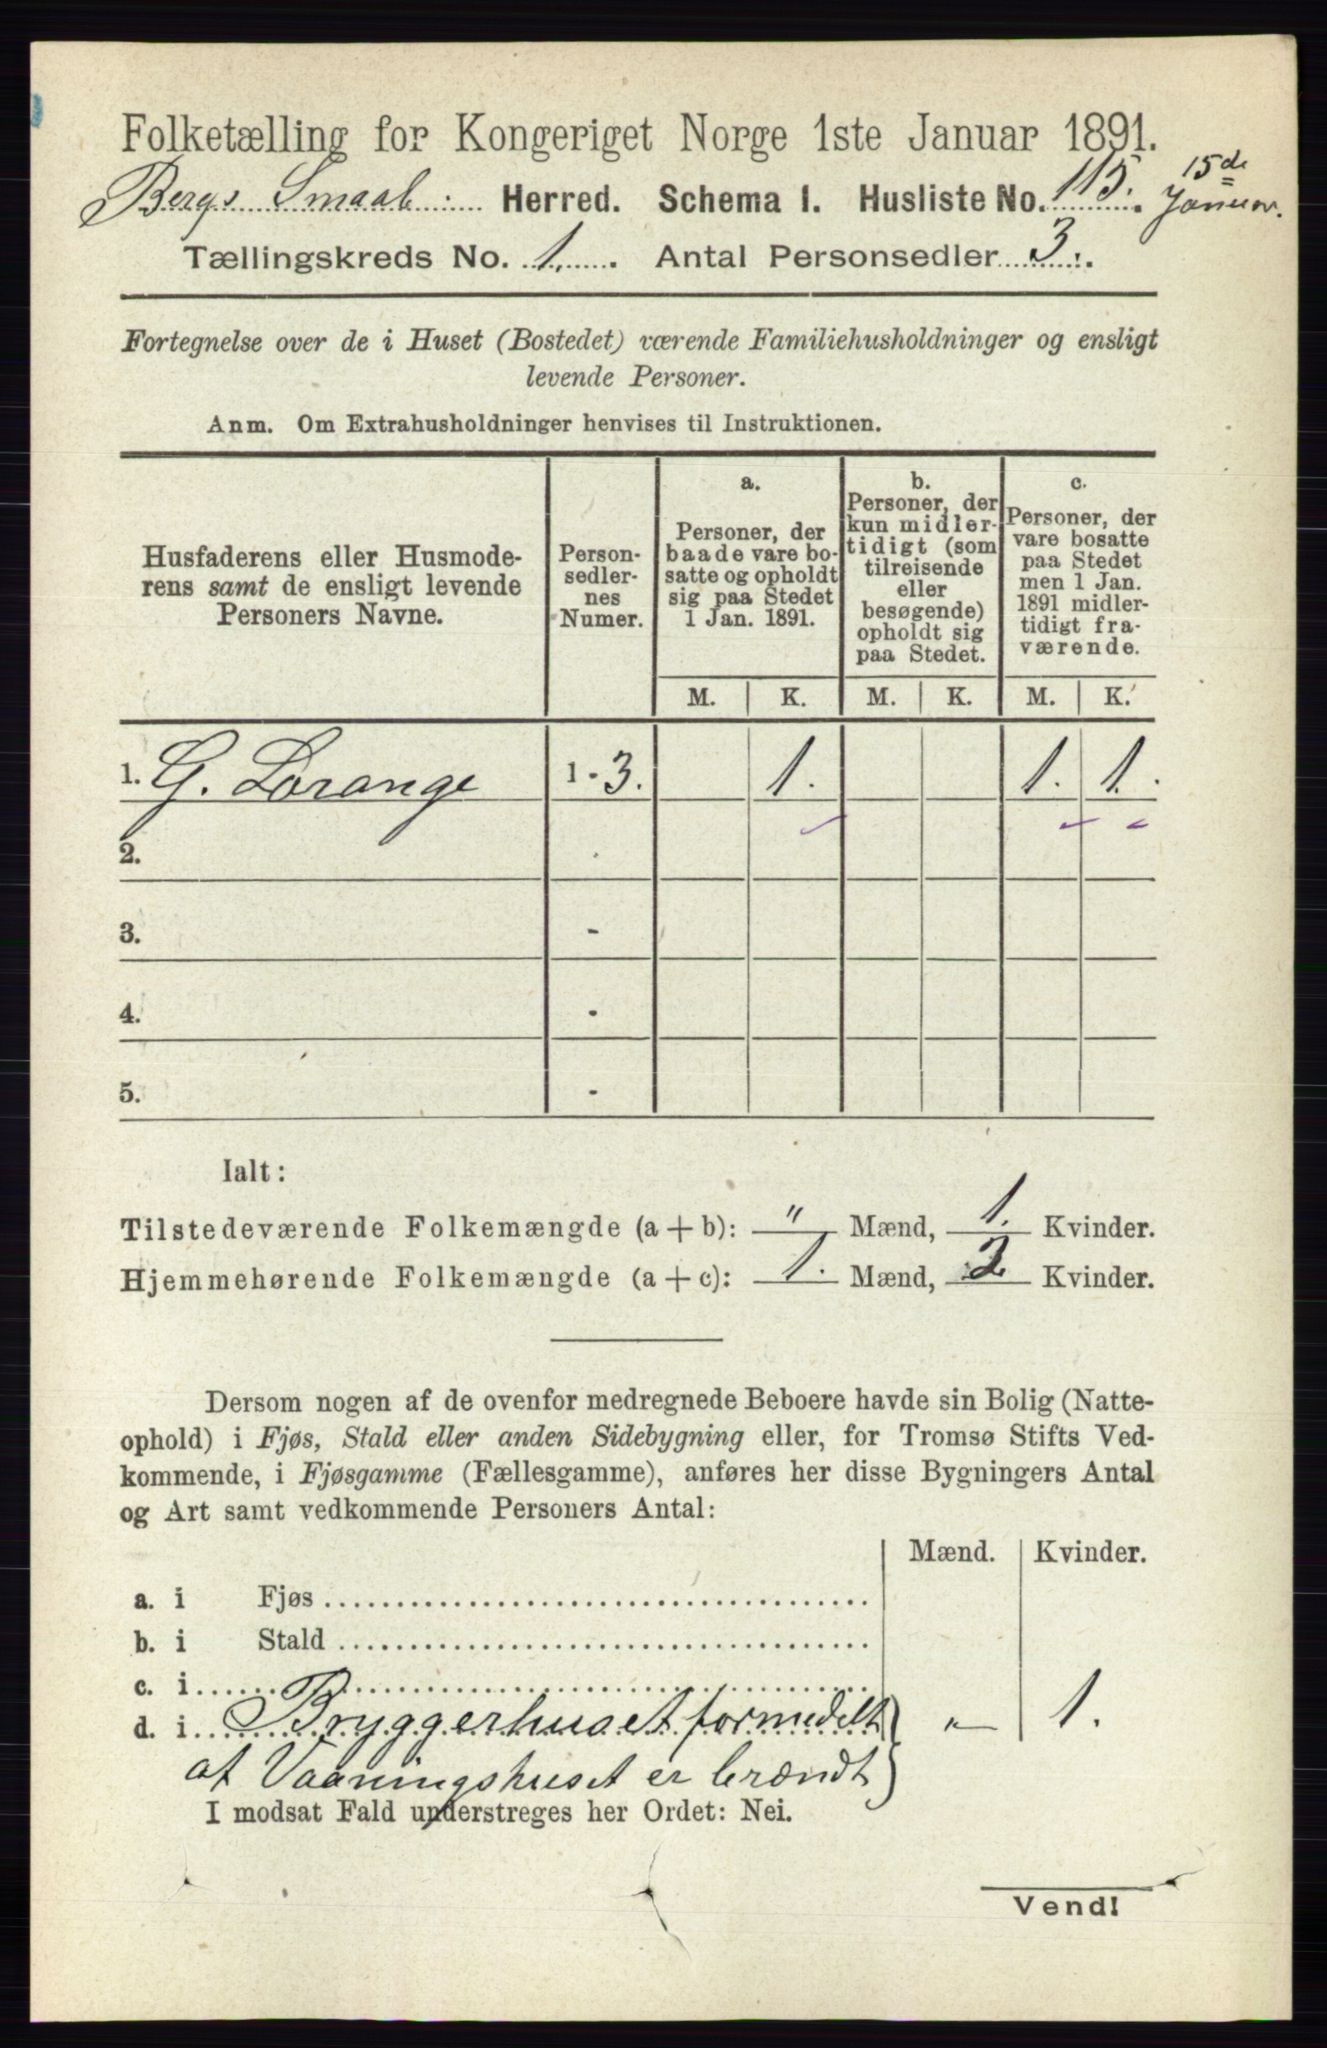 Folketælling for Kongeriget Norge 1ste Januar 1891.
Bergs Smaal: Herred. Schema 1. Husliste No. 115. 15de Januar.
Tællingskreds No. 1. Antal Personsedler 3.
Fortegnelse over de i Huset (Bostedet) værende Familiehusholdninger og ensligt
levende Personer.
Anm. Om Extrahusholdninger henvises til Instruktionen.
Husfaderens eller Husmode-
rens samt de ensligt levende
Personers Navne.
Person-
sedler-
nes
Numer.
a.
Personer, der
baade vare bo-
satte og opholdt
sig paa Stedet
1 Jan. 1891.
b.
Personer, der
kun midler-
tidigt (som
tilreisende
eller
besøgende)
opholdt sig
paa Stedet.
c.
Personer, der
vare bosatte
paa Stedet
men 1 Jan.
1891 midler-
tidigt fra-
værende.
M. K. M. K. M. K.
1. G. Lorange 1-3. 1. 1. 1.
2.
3. -
4. -
5. -
Ialt:
Tilstedeværende Folkemængde (a + b): " Mænd, 1. Kvinder.
Hjemmehørende Folkemængde (a + c): 1. Mænd, 2 Kvinder.
Dersom nogen af de ovenfor medregnede Beboere havde sin Bolig (Natte-
ophold) i Fjøs, Stald eller anden Sidebygning eller, for Tromsø Stifts Ved-
kommende, i Fjøsgamme (Fællesgamme), anføres her disse Bygningers Antal
og Art samt vedkommende Personers Antal:
Mænd. Kvinder.
a. i Fjøs
b. i Stald
c. i
d. i Bryggerhuset formedelt " 1.
at Vaaningshuset er brændt
I modsat Fald understreges her Ordet: Nei.
Vend!